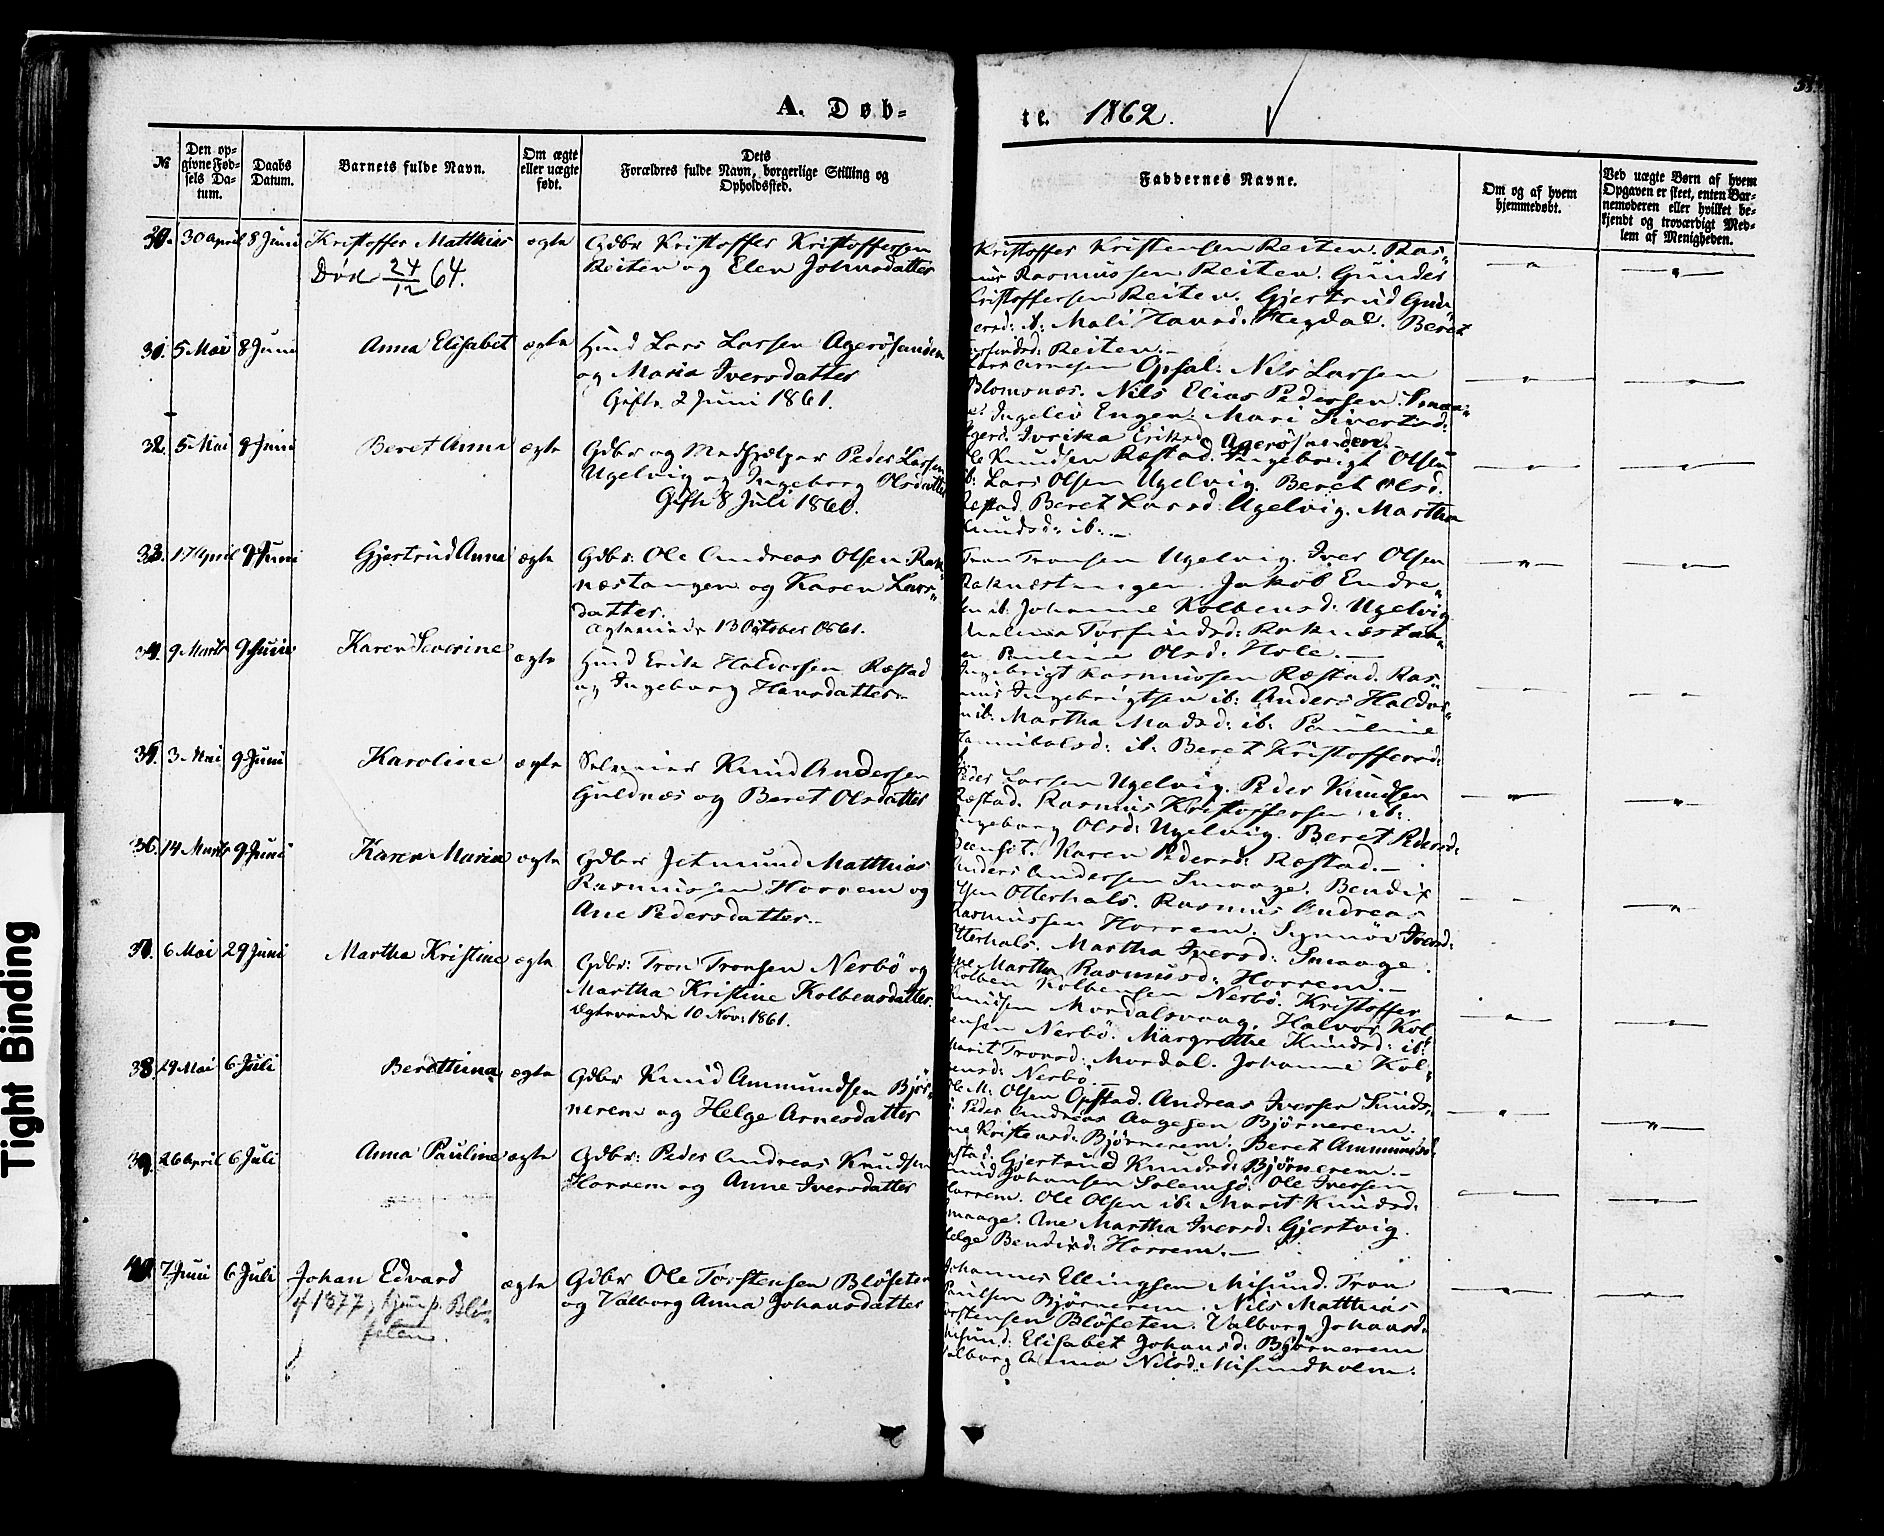 A. Døb=
te. 1862.
№
Den op=
givne Fød=
sels Da=
tum.
Daabs
Datum.
Barnets fulde Navn.
Om ægte
eller uægte
født.
Dets
Forældres fulde Navn, borgerlige Stilling og
Opholdssted.
Faddernes Navne.
Om og af hvem
hjemmedøbt.
Ved uægte Børn af hvem
Opgaven er skeet, enten Bar=
nemoderen eller hvilket be=
kjendt og troværdigt Med=
lem af Menigheden.
30 April 8 Juni Kristoffer Matthias ægte Gdbr Kristoffer Kristoffersen
Reiten og Elen Johnsdatter
Død 24/12 64.
Kristoffer Kristensen Reiten. Ras=
mus Rasmussen Reiten. Gunder
Kristoffersen Reiten. Gjertrud Gun=
dersd: ib: Mali Hansd: Hegdal. Beret
Reiten.
31. 5 Mai 8 Juni Anna Elisabet ægte Hmd Lars Larsen Agerøsanden
og Maria Iversdatter
Gifte 2 Juni 1861.
Lars Arnesen Opsal. Nils Larsen
Blomsnæs. Nils Elias Pedersen
Ingelev Engen. Mari Sivertsd:
Agerøsanden.
32. 5 Mai 9 Juni Beret Anna ægte Gdbr og Medhjælper Peder Larsen
Ugelvig og Ingeborg Olsdatter
Gifte 8 Juli 1860.
Ole Knudsen Ræstad. Ingebrigt Olsen
ib: Lars Olsen Ugelvig. Beret Olsd.
Ræstad. Beret Larsd: Ugelvig. Martha
Knudsd: ib:
33. 17 April 9 Juni Gjertrud Anna ægte Gdbr: Ole Andreas Olsen Rak=
næstangen og Karen Lars=
datter.
Ægteviede 13 October 1861.
Tron Tronsen Ugelvig. Iver Olsen
Raknæstangen. Jakob Endre=
sen ib. Johanne Kolbensd: Ugelvig
Torfindsd: Raknæstan=
gen Pauline Olsd: Hole.
34. 9 Marts 9 Juni Karen Severine ægte Hmd Erik Haldorsen Ræstad
og Ingeborg Hansdatter
Ingebrigt Rasmussen Ræstad. Ras=
mus Ingebrigtsen ib: Anders Haldor=
sen ib: Martha Madsd: ib: Pauline
Hannibalsd: ib: Beret Kristoffersd:
35. 3 Mai 9 Juni Karoline ægte Selveier Knud Andersen
Guldnæs og Beret Olsdatter
Peder Larsen Ugelvig. Peder Knudsen
Ræstad. Rasmus Kristoffersen ib:
Ingeborg Olsd: Ugelvig. Beret Pedersd:
Karen Pedersd: Ræstad.
36. 14 Marts 9 Juni Karen Maria ægte Gdbr Jetmund Matthias
Rasmussen Horrem og
Ane Pedersdatter
Anders Andersen Smaage. Bendix
Olsen Otterhals. Rasmus Andreas
Rasmussen Horrem. Synnøv Iversd:
Otterhals. Martha Iversd: Smaage.
Ane Martha Rasmusd: Horrem.
37. 6 Mai 29 Juni Martha Kristine ægte Gdbr: Tron Tronsen Nerbø og
Martha Kristine Kolbensdatter.
Ægteviede 10 Nov: 1861.
Kolben Kolbensen Nerbø. Kristoffer
Knudsen Mordalsvaag. Halvor Kol=
bensen Nerbø. Margrethe Knudsd: ib:
Marit Tronsd: Mordal. Johanne Kol=
bensd: Nerbø.
38. 19 Mai 6 Juli Berethina ægte Gdbr Knud Ammundsen Bjør=
nerem og Helge Arnesdatter
Ole M: Olsen Opstad. Andreas Iversen Sunds=
Peder Andreas Aagesen Bjørnerem.
Ane Kristensd: Bjørnerem. Beret Ammundsd:
Opstad. Gjertrud Knudsd: Bjørnerem.
39. 26 April 6 Juli Anna Pauline ægte Gdbr: Peder Andreas Knudsen
Horrem og Anne Iversdatter
Knud Johansen Solemsø. Ole Iversen
Horrem. Ole Olsen ib: Marit Knudsd:
Smaage. Ane Martha Iversd: Gjertvig.
Helge Bendixd: Horrem.
40. 7 Juni 6 Juli Johan Edvard ægte Gdbr Ole Torstensen Bløseten
og Valborg Anna Johansdatter
Johannes Ellingsen Misund. Tron
Paulsen Bjørnerem. Nils Matthias
Torstensen Bløseten. Valborg Johansd:
Misund. Elisabet Johansd: Bjørnerem
Valborg Anna Nilsd: Misundholm.
Tight Binding